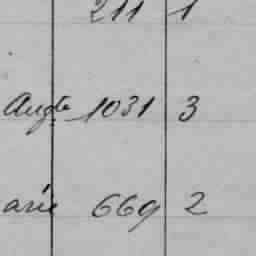 211 1
Augte 1031 3
arie 669 2